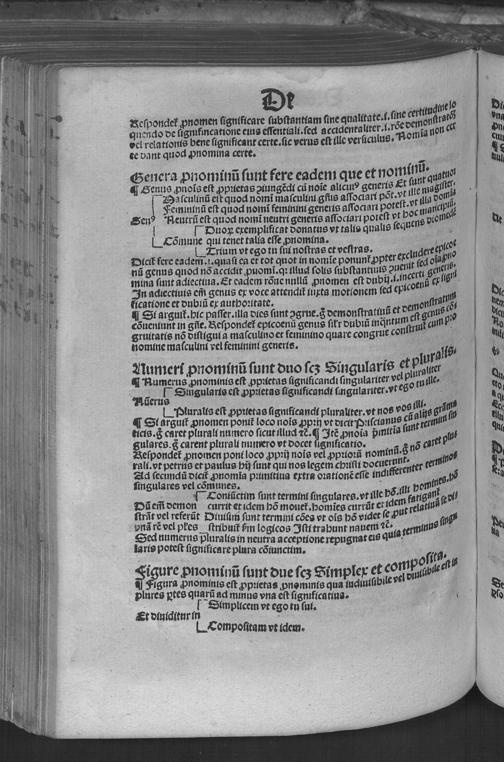 De
Respondet̃ p̱nomen significare substantiam sine qualitate .i. sine certitudine lo
quendo de significatione eius essentiali. sed accidentaliter .i. rõe demonstratiõis
vel relationis bene significant certe. sic verus est ille versiculus. Nomĩa non cer
te dant quod p̱nomina certe.
Genera p̱nominũ sunt fere eadem que et nominũ.
¶ Genus p̱nois est p̱prietas ei cũ noie alicuiꝰ generis Et sunt quatuor
Masculinũ est quod nomĩ masculini gñis associari põt. vt ille magister.
Femininũ est quod nomĩ feminini generis associari potest. vt illa domĩa
Genꝰ Neutrũ est quod nomĩ neutri generis associari potest vt hoc mancipiũ.
Duoꝝ exemplificat donatus vt talis qualis sequens
Cõmune qui tenet talia esse p̱nomina.
Trium vt ego tu sui nostras et vestras.
Dicit̃ fere eadem .i. quasi ea et tot quot in nomĩe ponunt̃ p̱pter excludere epicoe
nũ genus quod nõ accidit p̱nomĩ. qꝛ illud solis substantiuis ꝯuenit sed oĩa p̱no
mina sunt adiectiua. Et eadem rõne nullũ p̱nomen est dubij .i. incerti generis.
In adiectiuis em̃ genus ex voce attendit̃ iuxta motionem sed epicoenũ ex signi
ficatione et dubiũ ex authoritate.
¶ Si arguit̃ hic passer. illa dies sunt ꝯgrue. g̃ demonstratiuũ et demonstratum
cõueniunt in gñe. Respondet̃ epicoenũ genus sĩtr dubiũ inq̃ntum est genus cõ
gruitatis nõ distĩgui a masculino et feminino quare congrue construit̃ cum p̱no
nomine masculini vel feminini generis.
Numeri p̱nominũ sunt duo scꝫ Singularis et pluralis.
¶ Numerus p̱nominis est p̱prietas significandi singulariter vel pluraliter
Singularis est p̱prietas significandi singulariter. vt ego tu ille.
Nũerus
Pluralis est p̱prietas significandi pluraliter. vt nos vos illi.
¶ Si arguit̃ p̱nomen ponit̃ loco nois p̱prij vt dicit Priscianus cũ alijs grãma
ticis. g̃ caret plurali numero sicut illud ⁊c. ¶ Itẽ p̱noĩa p̱mitĩa sunt termini sin
gulares. g̃ carent plurali numero vt docet significatio.
Respondet̃ p̱nomen poni loco p̱prij nois vel p̱prioꝝ nominũ. g̃ nõ caret plu
rali. vt petrus et paulus hij sunt qui nos legem christi docuerunt.
Ad secundũ dicit̃ p̱nomĩa primitiua extra orationẽ esse indifferenter terminos
singulares vel cõmunes.
Coniũctim sunt termini singulares. vt ille hõ. illi homines. hõ
Dũ em̃ demon currit et idem hõ mouet̃. homĩes currũt et idem fatigant̃
strãt vel referũt Diuisim sunt termini cões vt oĩs hõ videt se put relatiuũ se di
vnã rẽ vel plẽs stribuit̃ fm̃ logicos Isti trahunt nauem ⁊c.
Sed numerus pluralis in neutra acceptione repugnat eis quia terminus singu
laris potest significare plura cõiunctim.
Figure p̱nominũ sunt due scꝫ Simplex et composita.
¶ Figura p̱nominis est p̱prietas p̱nominis qua indiuisibile vel diuisibile est in
plures p̱tes quarũ ad minus vna est significatiua.
Simplicem vt ego tu sui.
Et diuiditur in
Compositam vt idem.